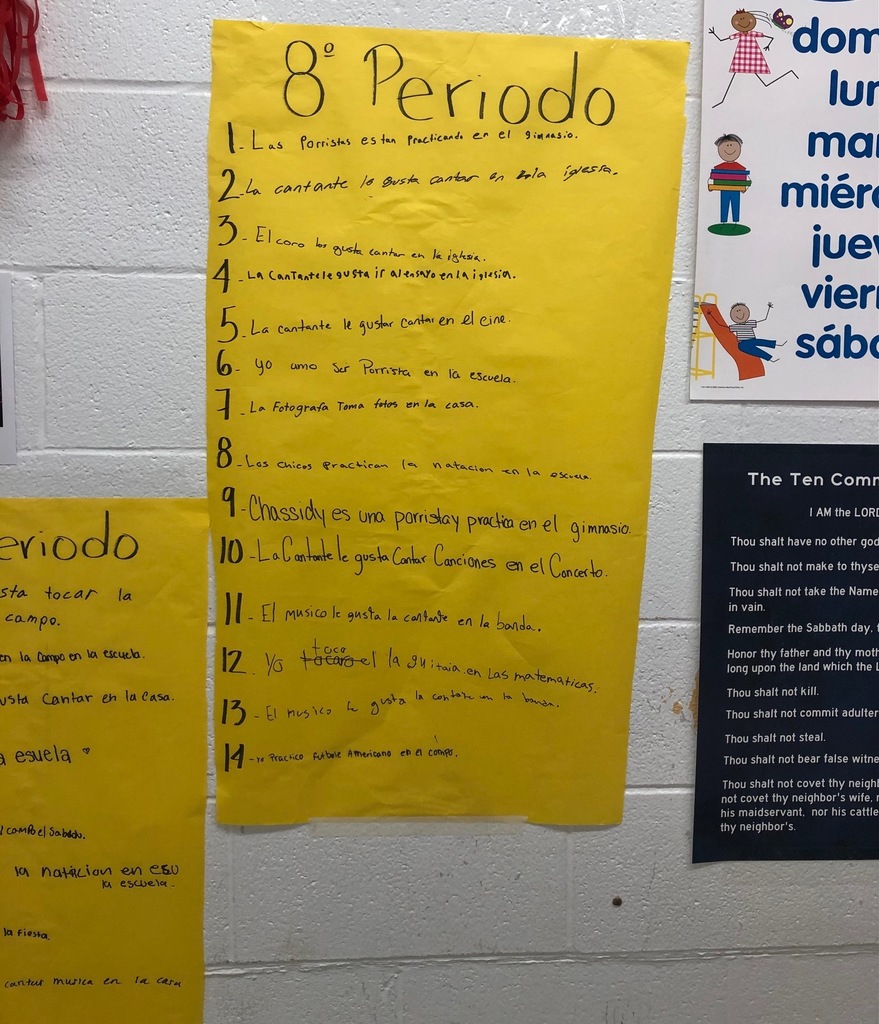 8º Periodo
1. Las Porristas estan Practicando en el gimnasio.
2. La cantante le gusta cantar en la iglesia.
3. El coro les gusta cantar en la iglesia.
4. La Cantante le gusta ir al ensayo en la iglesia.
5. La cantante le gustar cantar en el cine.
6. yo amo ser Porrista en la escuela.
7. La Fotografa Toma fotos en la casa.
8. Los chicos practican la natacion en la escuela.
9. Chassidy es una porrista y practica en el gimnasio.
10 - La Cantante le gusta Cantar Canciones en el Concerto.
11. El musico le gusta la cantante en la banda.
12. Yo toco el la guitaia en Las matematicas.
13 - El musico le gusta la cantate en la banda.
14 - yo Practico futbole Americano en el campo.
eriodo
sta tocar la
campo.
en la Campo en la escuela.
usta Cantar en la Casa.
a esuela
campo el Sabado.
la natacion en esu
la escuela.
la fiesta.
cantar musica en la casa
dom
lun
mar
miérc
juev
viern
sába
The Ten Comm
I AM the LORD
Thou shalt have no other god
Thou shalt not make to thyse
Thou shalt not take the Name
in vain.
Remember the Sabbath day, t
Honor thy father and thy moth
long upon the land which the L
Thou shalt not kill.
Thou shalt not commit adulter
Thou shalt not steal.
Thou shalt not bear false witne
Thou shalt not covet thy neighb
not covet thy neighbor's wife, n
his maidservant, nor his cattle
thy neighbor's.